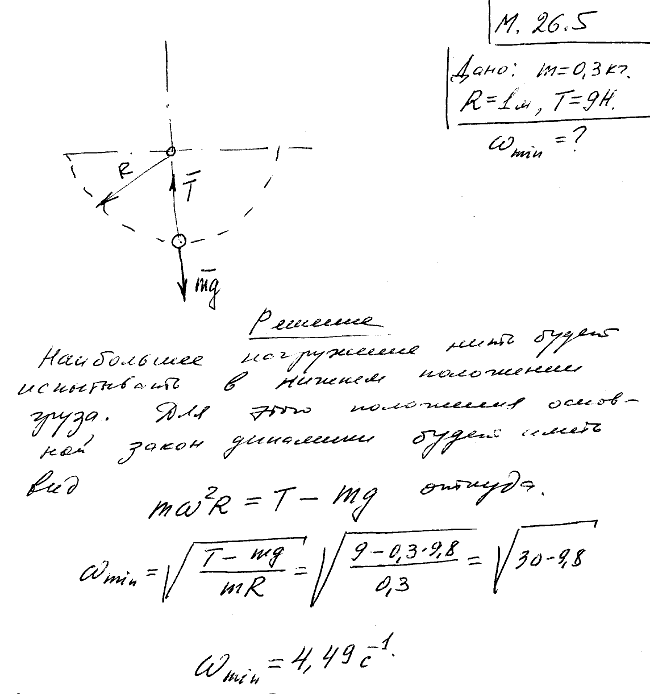 М. 26.5
Дано: m=0,3кг.
R=1м, T=9Н.
ω min = ?
R
T̅
m̅g
Решение
Наибольшее нагружение нить будет
испытывать в нижнем положении
груза. Для этого положения основ-
ной закон динамики будет иметь
вид mω²R = T − mg откуда.
ω min = √((T − mg)/(mR)) = √((9−0,3·9,8)/0,3) = √(30−9,8)
ω min = 4,49 с⁻¹.